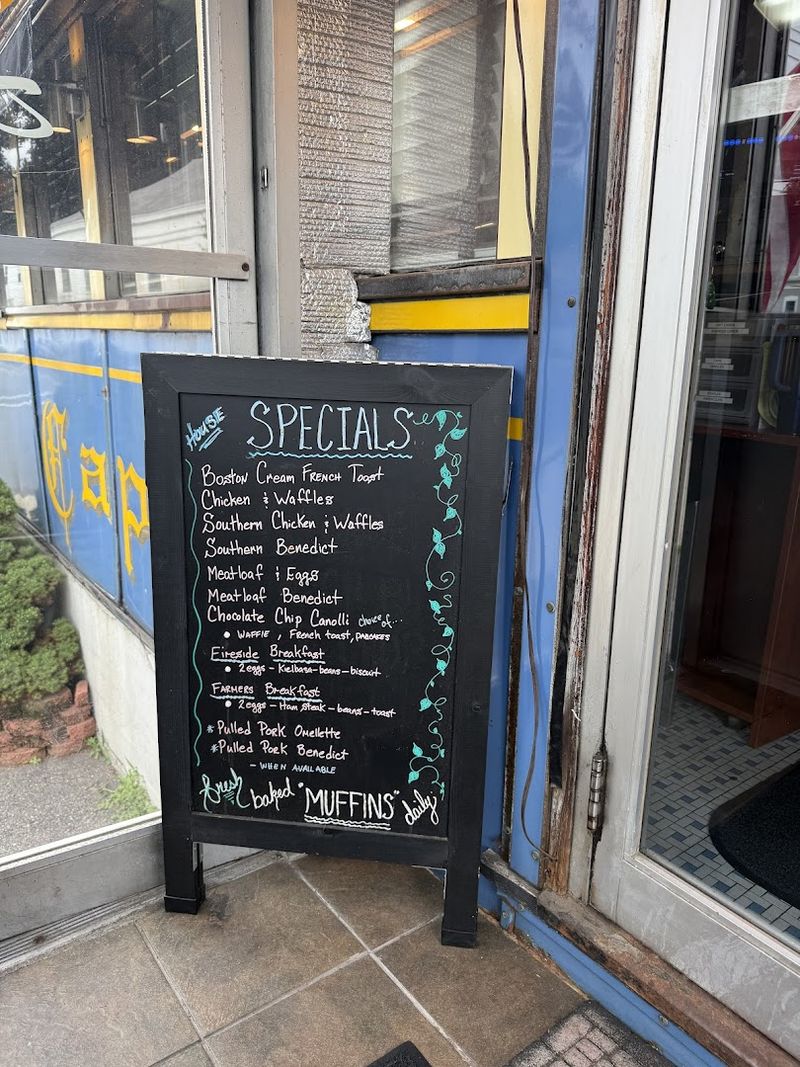 HOUSE SPECIALS
Boston Cream FRENCH Toast
Chicken & Waffles
Southern Chicken & Waffles
Southern Benedict
Meatloaf & Eggs
Meatloaf Benedict
Chocolate Chip Canolli choice of...
• WAFFlE, French toast, pancakes
Fireside Breakfast
• 2eggs - Kielbasa-beans-biscuit
FARMERS Breakfast
• 2eggs - Ham steak - beans - toast
*Pulled Pork Omellette
*Pulled Pork Benedict
- WHEN AVAILABLE
fresh baked "MUFFINS" daily
Cap